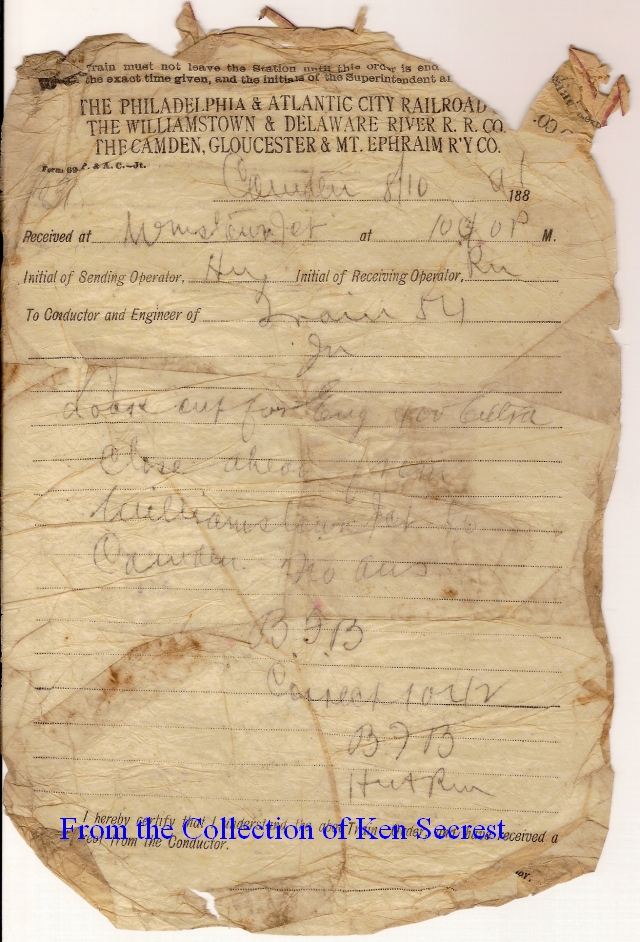 Train must not leave the Station until this order is end
the exact time given, and the initials of the Superintendent a
THE PHILADELPHIA & ATLANTIC CITY RAILROAD
THE WILLIAMSTOWN & DELAWARE RIVER R. R. CO.
THE CAMDEN, GLOUCESTER & MT. EPHRAIM R'Y CO.
Form 69 P. & A. C.—Jt.
Camden 8/10 188
Received at Wmstown Jct at P M.
Initial of Sending Operator, Hu Initial of Receiving Operator, Rn
To Conductor and Engineer of Train 54
Look out for Eng Extra
Close ahead from
Williamstown Jct to
Camden. No ans
BFB
Correct 1042
BFB
I hereby certify that I understand the above Train Order, and have received a
from the Conductor.
From the Collection of Ken Secrest